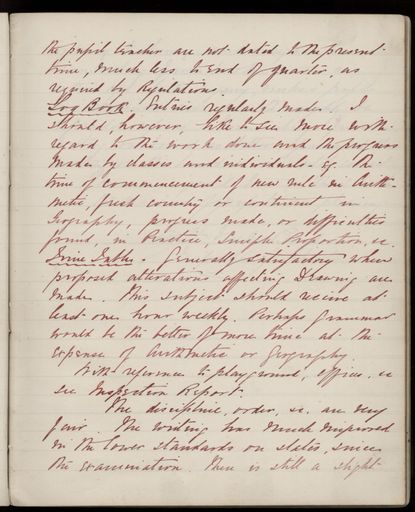 the pupil teacher are not dated to the present
time, much less to end of quarter, as
required by Regulations
Log Book. Entries regularly made. I
should, however, like to see more with
regard to the work done and the progress
made by classes and individuals e.g. the
time of commencement of new rule in Arith-
metic, fresh country or continent in
Geography, progress made, or difficulties
found, in Practice, Simple Proportion, &c.
Time Tables. Generally satisfactory when
proposed alterations affecting Drawing are
made. This subject should receive at
least one hour weekly. Perhaps Grammar
would be the better of more time at the
expense of Arithmetic or Geography.
With reference to playground, offices, &c
see Inspection Report.
The discipline, order, &c. are very
fair. The writing has much improved
in the lower standards on slates, since
the examination. There is still a slight